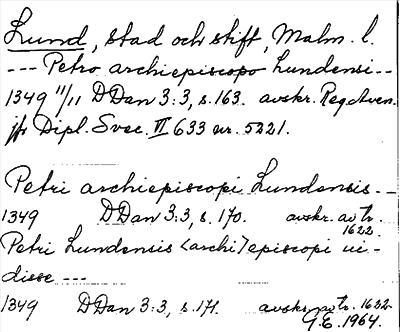 Lund, stad och stift, Malm. l.
--- Petro archiepiscopo Lundensi --
1349 11/11 DDan 3:3, s. 163. avskr. Reg. Aven.
jfr Dipl. Svec. VI 633 nr. 5221.
Petri archiepiscopi Lundensis --
1349 DDan 3:3, s. 170. avskr. av tr.
1622.
Petri Lundensis <archi>episcopi vi-
disse ---
1349 DDan 3:3, s. 171. avskr. av tr. 1622.
G.E. 1964.